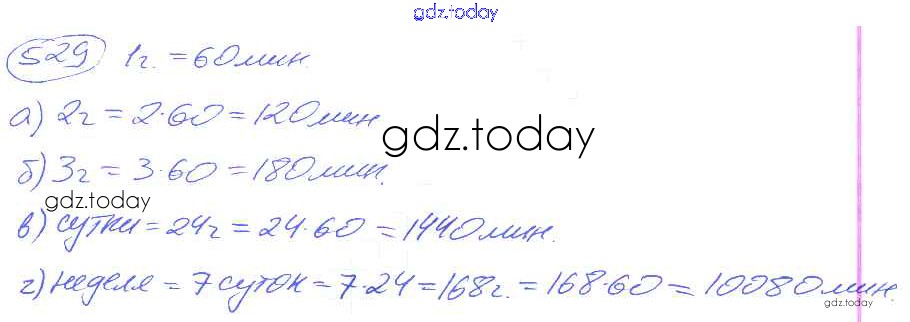 gdz.today
529 1г. = 60мин.
а) 2г = 2·60 = 120мин
gdz.today
б) 3г = 3·60 = 180мин.
gdz.today
в) сутки = 24г = 24·60 = 1440мин.
г) неделя = 7 суток = 7·24 = 168г. = 168·60 = 10080мин.
gdz.today